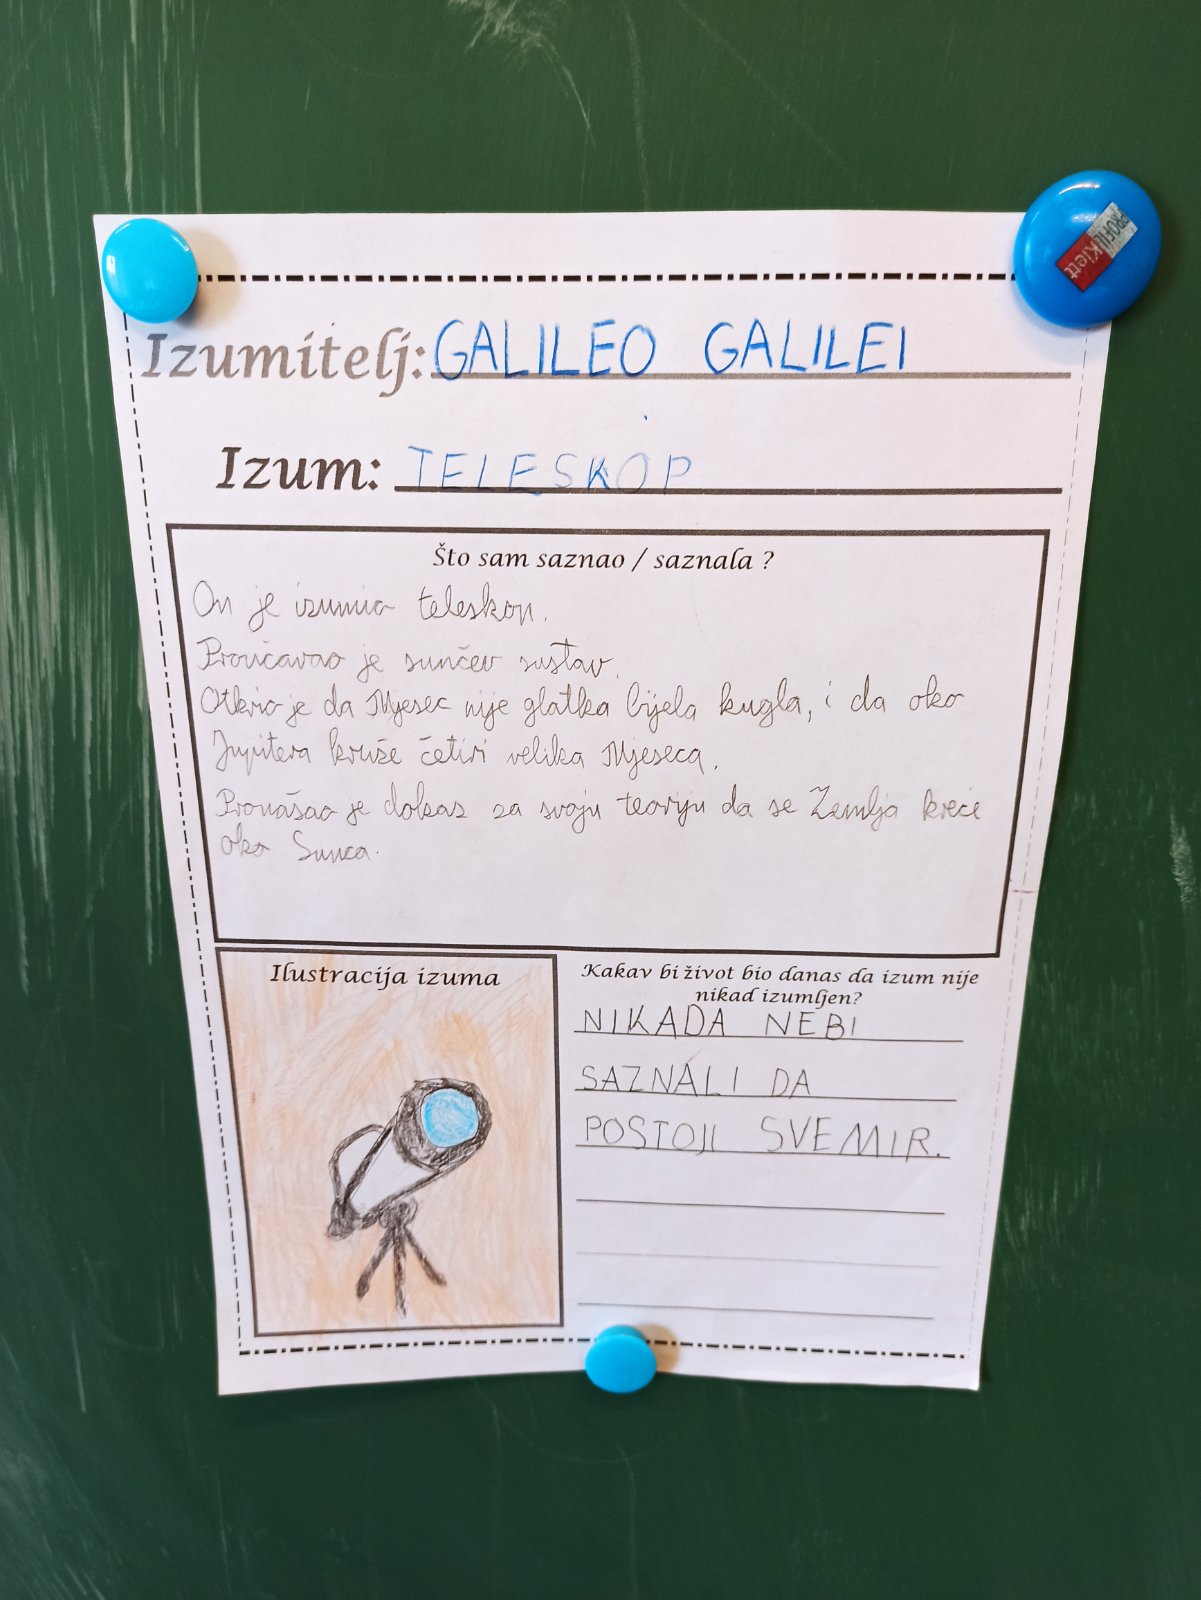 PROFIL Klett
Izumitelj: GALILEO GALILEI
Izum: TELESKOP
Što sam saznao / saznala ?
On je izumio teleskop.
Proučavao je sunčev sustav.
Otkrio je da Mjesec nije glatka bijela kugla, i da oko
Jupitera kruže četiri velika Mjeseca.
Pronašao je dokaz za svoju teoriju da se Zemlja kreće
oko Sunca.
Ilustracija izuma
Kakav bi život bio danas da izum nije
nikad izumljen?
NIKADA NEBI
SAZNALI DA
POSTOJI SVEMIR.